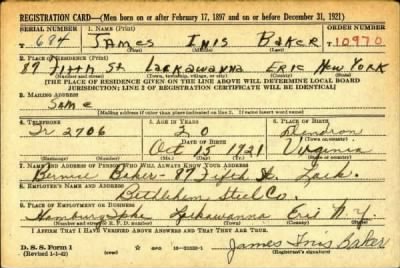 REGISTRATION CARD—(Men born on or after February 17, 1897 and on or before December 31, 1921)
SERIAL NUMBER 1. NAME (Print) ORDER NUMBER
T 684 JAMES INIS BAKER T10970
(First) (Middle) (Last)
2. PLACE OF RESIDENCE (Print)
87 FIFTH St LACKAWANNA ERIE NEW YORK
(Number and street) (Town, township, village, or city) (County) (State)
[THE PLACE OF RESIDENCE GIVEN ON THE LINE ABOVE WILL DETERMINE LOCAL BOARD
JURISDICTION; LINE 2 OF REGISTRATION CERTIFICATE WILL BE IDENTICAL]
3. MAILING ADDRESS
Same
[Mailing address if other than place indicated on line 2. If same insert word same]
4. TELEPHONE 5. AGE IN YEARS 6. PLACE OF BIRTH
Tr 2706 20 Dendron
DATE OF BIRTH (Town or county)
Oct 15 1921 Virginia
(Exchange) (Number) (Mo.) (Day) (Yr.) (State or country)
7. NAME AND ADDRESS OF PERSON WHO WILL ALWAYS KNOW YOUR ADDRESS
Baker - 87 Fifth St. Lack.
8. EMPLOYER'S NAME AND ADDRESS
Bethlehem Steel Co.
9. PLACE OF EMPLOYMENT OR BUSINESS
Hamburg Tpke Lackawanna Erie N.Y.
(Number and street or R. F. D. number) (Town) (County) (State)
I AFFIRM THAT I HAVE VERIFIED ABOVE ANSWERS AND THAT THEY ARE TRUE.
D. S. S. Form 1
(Revised 1-1-42) (over) James Inis Baker
(Registrant's signature)